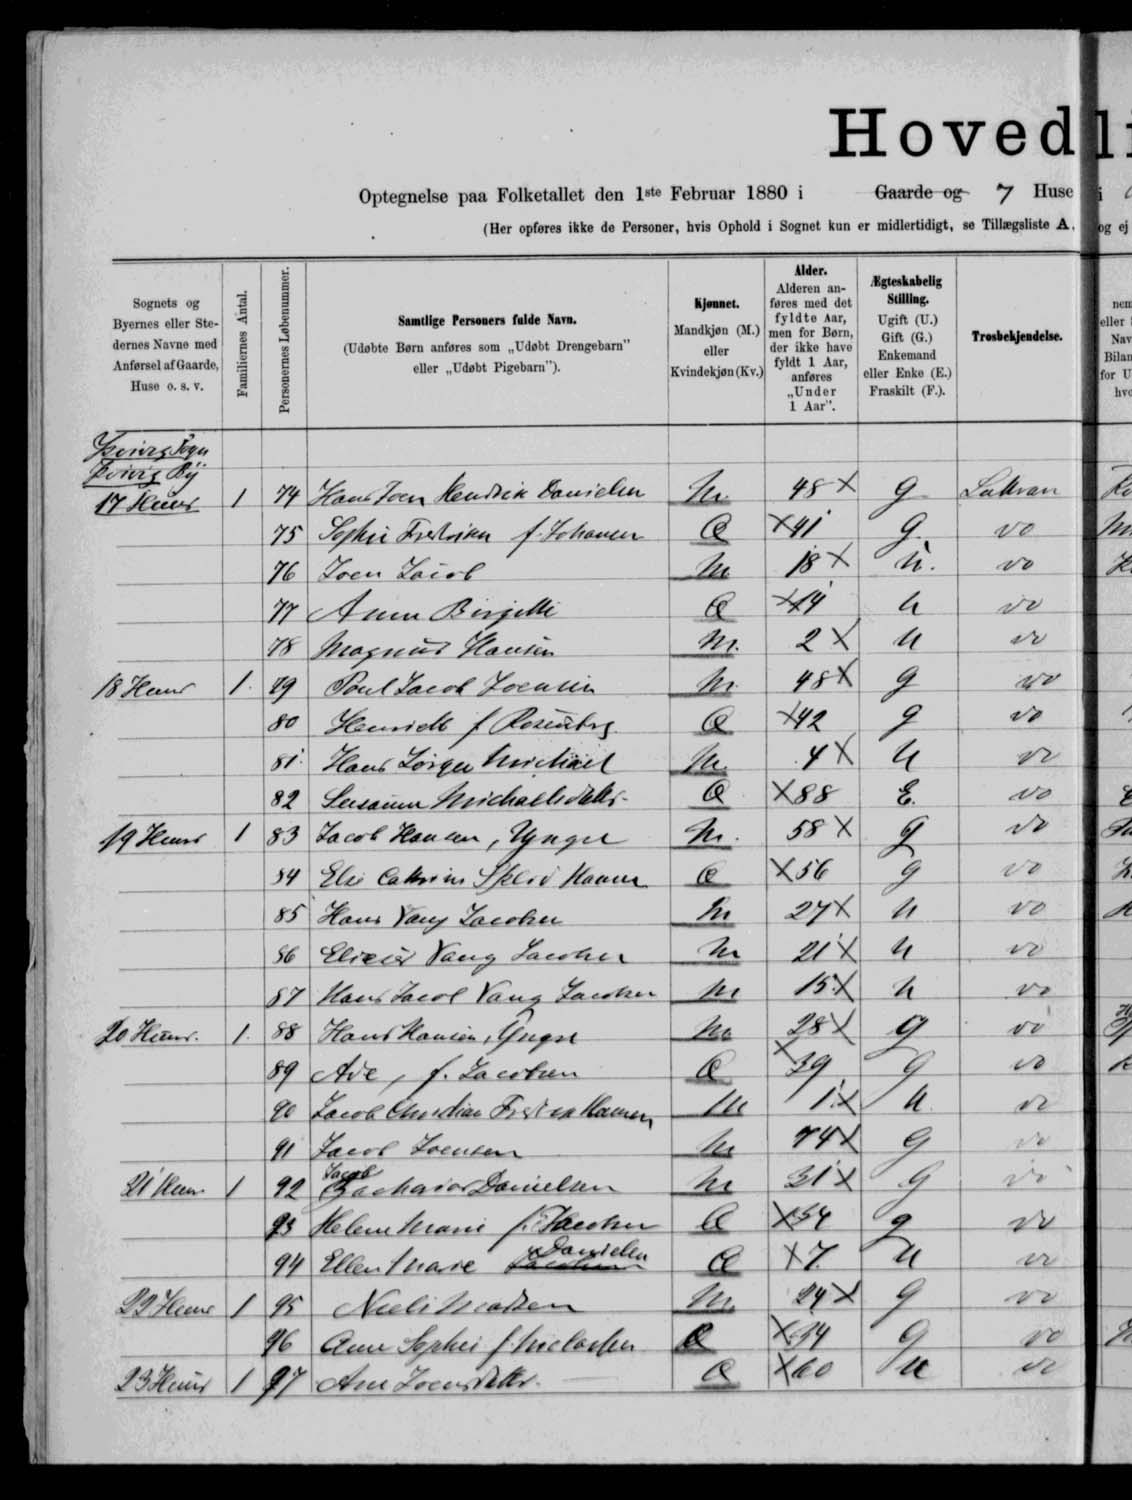 Hovedli
Optegnelse paa Folketallet den 1ste Februar 1880 i Gaarde og 7 Huse i
(Her opføres ikke de Personer, hvis Ophold i Sognet kun er midlertidigt, se Tillægsliste A, og ej
Sognets og Byernes eller Ste-
dernes Navne med
Anførsel af Gaarde,
Huse o. s. v.
Familiernes Antal.
Personernes Løbenummer.
Samtlige Personers fulde Navn.
(Udøbte Børn anføres som „Udøbt Drengebarn”
eller „Udøbt Pigebarn”).
Kjønnet.
Mandkjøn (M.)
eller
Kvindekjøn (Kv.)
Alder.
Alderen an-
føres med det
fyldte Aar,
men for Børn,
der ikke have
fyldt 1 Aar,
anføres
„Under
1 Aar”.
Ægteskabelig
Stilling.
Ugift (U.)
Gift (G.)
Enkemand
eller Enke (E.)
Fraskilt (F.).
Trosbekjendelse.
Kvivig Sogn
Kvivig By
17 Huus 1 74 Hans Joen Hendrik Danielsen M. 48 X G Luthran
75 Sophie f. Johansen Q X 41 G. do
76 Joen Jacob M 18 X U. do
77 Anna Birgitte Q X 14 U do
78 Magnus Hansen M. 2 X U do
18 Huus 1. 79 Poul Jacob Joensen M. 48 X G do
80 f Rosenberg Q X 42 G do
81 Hans Jørgen Michael M. 4 X U do
82 Susanna Michaelsdatter Q X 88 E. do
19 Huus 1 83 Jacob Hansen, Yngre M. 58 X G do
84 Else Cathrine Hansen Q X 56 G do
85 Hans Vang Jacobsen M 27 X U do
86 Vang Jacobsen M 21 X U do
87 Hans Jacob Vang Jacobsen M 15 X U do
20 Huus. 1. 88 Hans Hansen, Yngre M 28 X G do
89 f. Jacobsen Q X 39 G do
90 Jacob Christian Hansen M 1 X U. do
91 Jacob Joensen M 74 X G do
21 Huus 1 92 Jacob Zacharias Danielsen M 31 X G do
93 Helene Marie f. Jacobsen Q X 34 G do
94 Ellen Marie Danielsen Q X 7. U do
22 Huus 1 95 Niels Madsen M. 24 X G do
96 Anne Sophie f. Q X 34 G do
23 Huus 1 97 Ane Joensdatter. Q X 60 U do